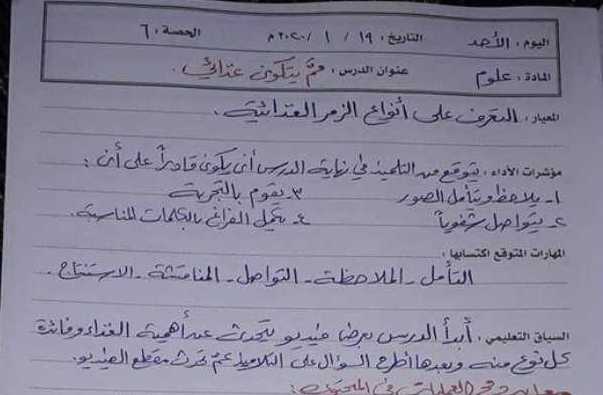 اليوم: الأحد التاريخ: ١٩ / ١ / ٢٠٢٠م الحصة: ٦
المادة: علوم عنوان الدرس: ممَّ يتكون غذائي.
المعيار: التعرف على أنواع الزمر الغذائية.
مؤشرات الأداء: يتوقع من التلميذ في نهاية الدرس أن يكون قادراً على أن:
١- يلاحظ ويتأمل الصور ٣- يقوم بالتجربة
٢- يتواصل شفوياً ٤- يكمل الفراغ بالكلمات المناسبة.
المهارات المتوقع اكتسابها:
التأمل - الملاحظة - التواصل - المناقشة - الاستنتاج.
السياق التعليمي: أبدأ الدرس بعرض فيديو يتحدث عن أهمية الغذاء وفائدة
كل نوع منه وبعدها أطرح السؤال على التلاميذ عمّ تحدث مقطع الفيديو.